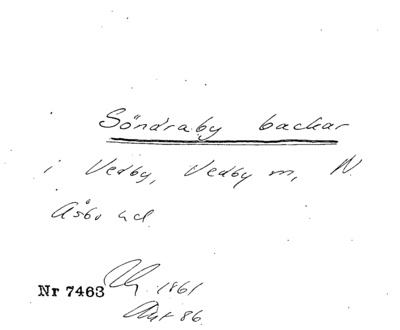 Söndraby backar
i Vedby, Vedby m, N.
Åsbo hd.
Nr 7463 1861
86